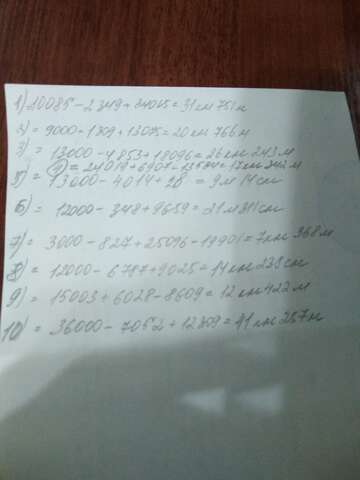 1) 10085-2349+24015=31км 751м
2) = 9000-1309+13075=20км 766м
3) = 13000-4853+18096=26км 243м
4) = 24019+6907-13584=17км 342м
5) = 13000-4014+28 = 9м 14см
6) = 12000-348+9659=21м 311см
7) = 3000-827+25096-19901=7км 368м
8) = 12000-6787+9025=14км 238см
9) = 15003+6028-8609=12км 422м
10) = 36000-7052+12309=41км 257м